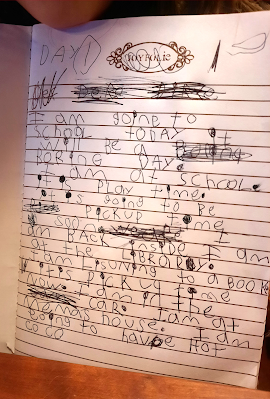 DAY 1
I am going to
SCHOOL TODAY. It
will BE a
BORING DAY.
I am at SCHOOL.
It is PLAY time.
It is going to BE
PICKUP time
I am
BACK INSIDE I am
at the LIBRARY.
I am
to a BOOK
It is PICKUP time
now. I am in
car. I am at
house. I am
going to have Hot
CO CO